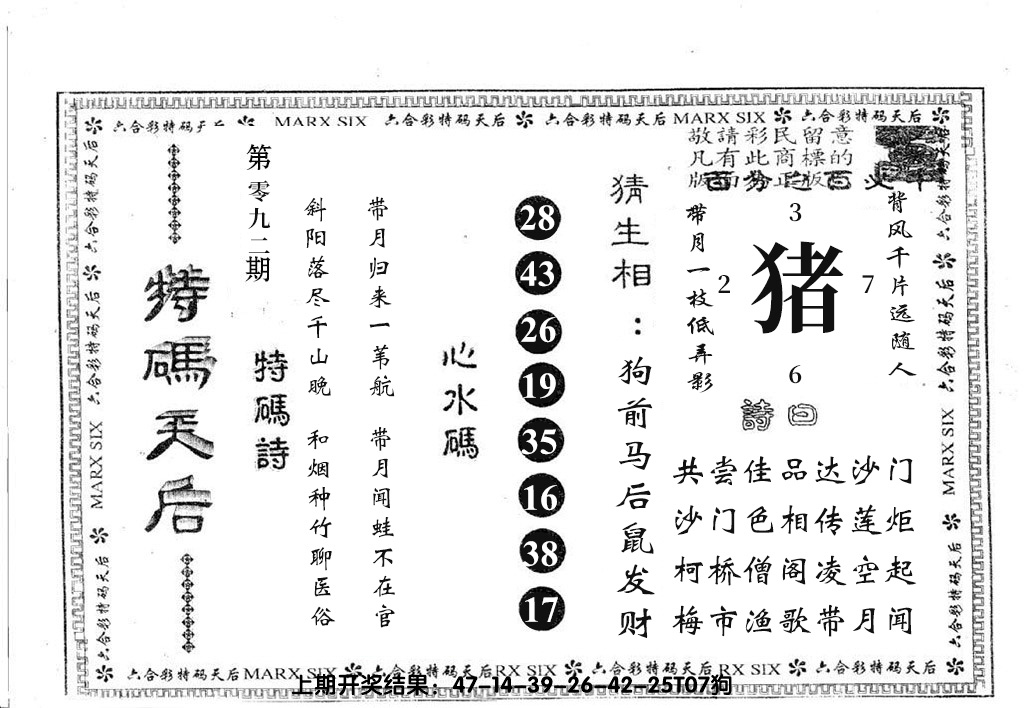 六合彩特码天后 MARX SIX 六合彩特码天后 六合彩特码天后 MARX SIX 六合彩特码天后
敬請彩民留意
凡有此商標的
背风千片远随人
3
2 猪 7
6
带月一枝低弄影
詩曰
门炬起闻
沙莲空月
达传凌带
品相阁歌
佳色僧渔
尝门桥市
共沙柯梅
猜生相：狗前马后鼠发财
28
43
26
19
35
16
38
17
心水碼
带月归来一苇航 带月闻蛙不在官
斜阳落尽千山晚 和烟种竹聊医俗
特碼詩
第零九二期
特碼天后
六合彩特码天后
MARX SIX
六合彩特码天后
六合彩特码天后
MARX SIX
六合彩特码天后
六合彩特码天后 MARX SIX 六合彩特码天后 RX SIX 六合彩特码天后 RX SIX 六合彩特码天后
上期开奖结果：47-14-39-26-42-25T07狗